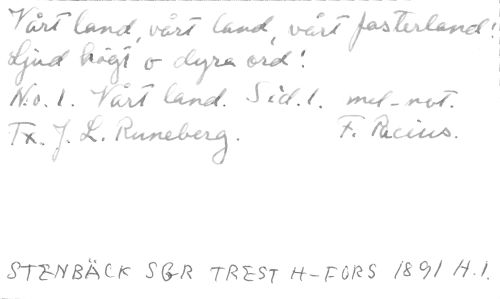 Vårt land, vårt land, vårt fosterland!
Ljud högt o dyra ord!
N:o. 1. Vårt land. Sid. 1. mel-not.
Tx. J. L. Runeberg. F. Pacius.
STENBÄCK SGR TREST H-FORS 1891 H.1.